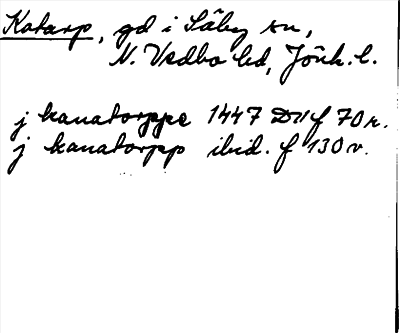 Katarp, gd i Säby sn,
N. Vedbo hd, Jönk. l.
j kanatorppe 1447 D11 f 70 r.
j kanatorpp ibid. f 130 v.